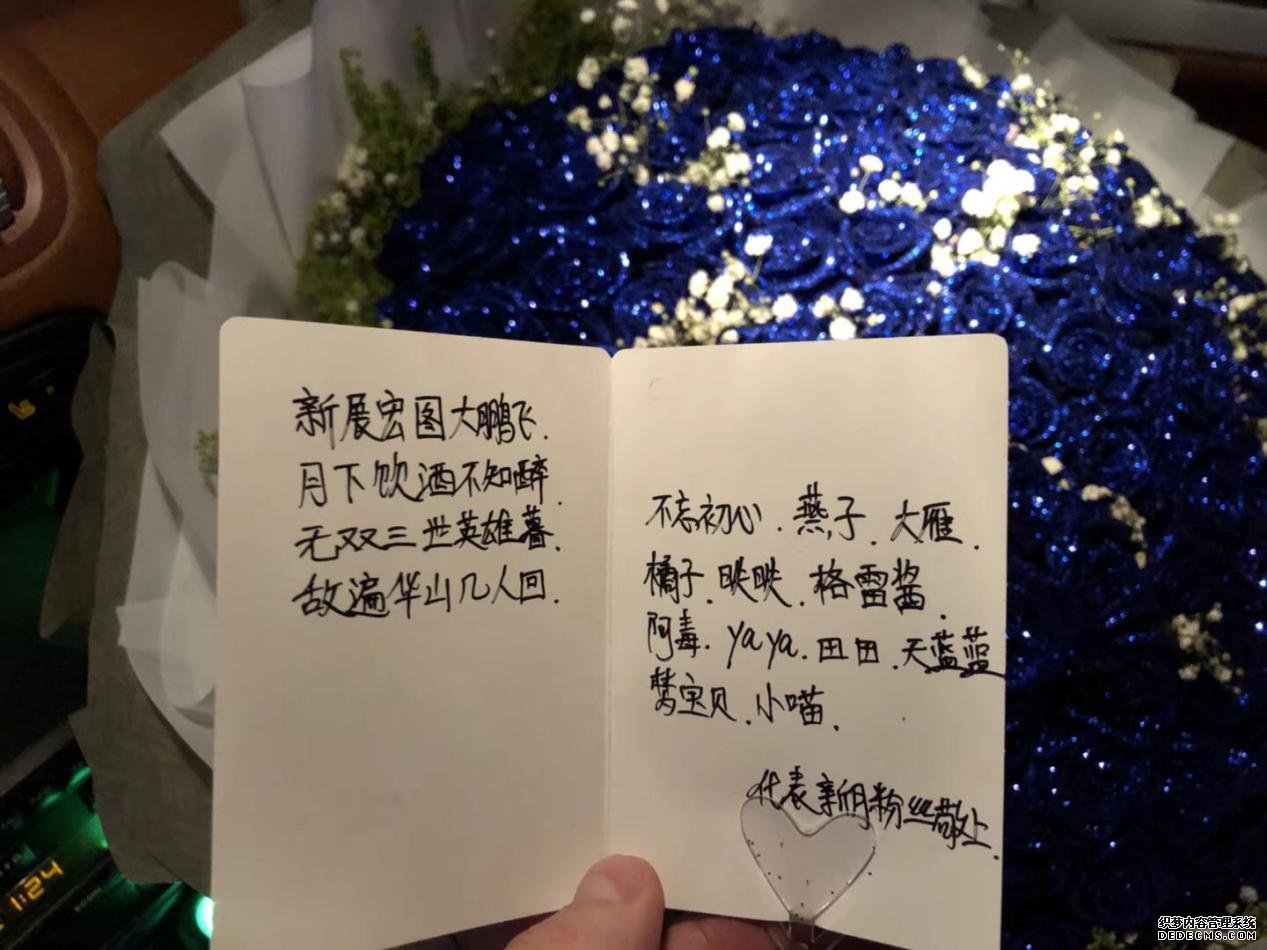 新展宏图大鹏飞.
月下饮酒不知醉.
无双三世英雄暮.
敌遍华山几人回.
不忘初心.燕子.大雁.
橘子.映映.格雷酱.
阿毒.yaya.田田.天蓝蓝
梦宝贝.小喵.
代表新月粉丝敬上.
1:24
织梦内容管理系统
DEDECMS.COM